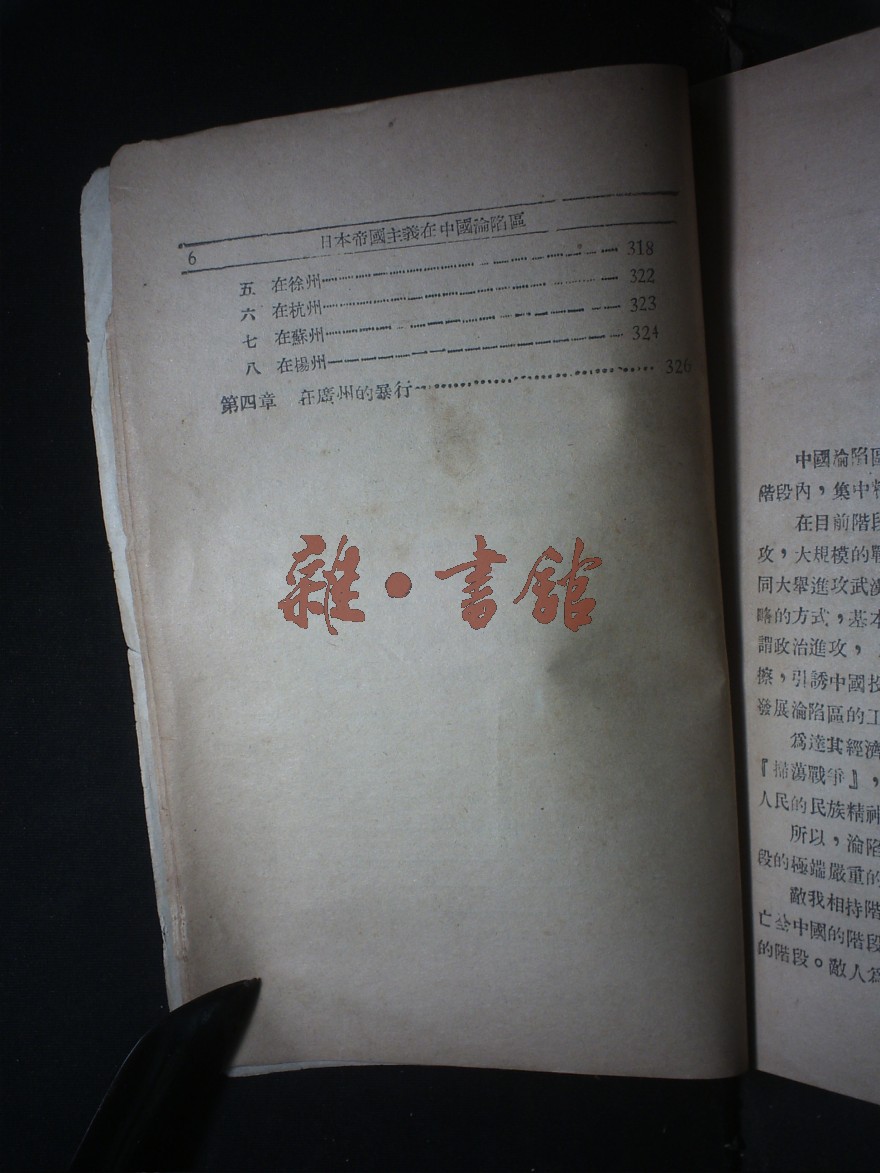 6 日本帝國主義在中國淪陷區
五 在徐州 318
六 在杭州 322
七 在蘇州 323
八 在楊州 324
第四章 在廣州的暴行 326
雜·書館
中國淪陷區
階段內，集中精
在目前階段
攻，大規模的戰
同大舉進攻武漢
略的方式，基本
謂政治進攻，
擦，引誘中國投
發展淪陷區的工
爲達其經濟
『掃蕩戰爭』，
人民的民族精神
所以，淪陷
段的極端嚴重的
敵我相持階
亡全中國的階段
的階段。敵人爲